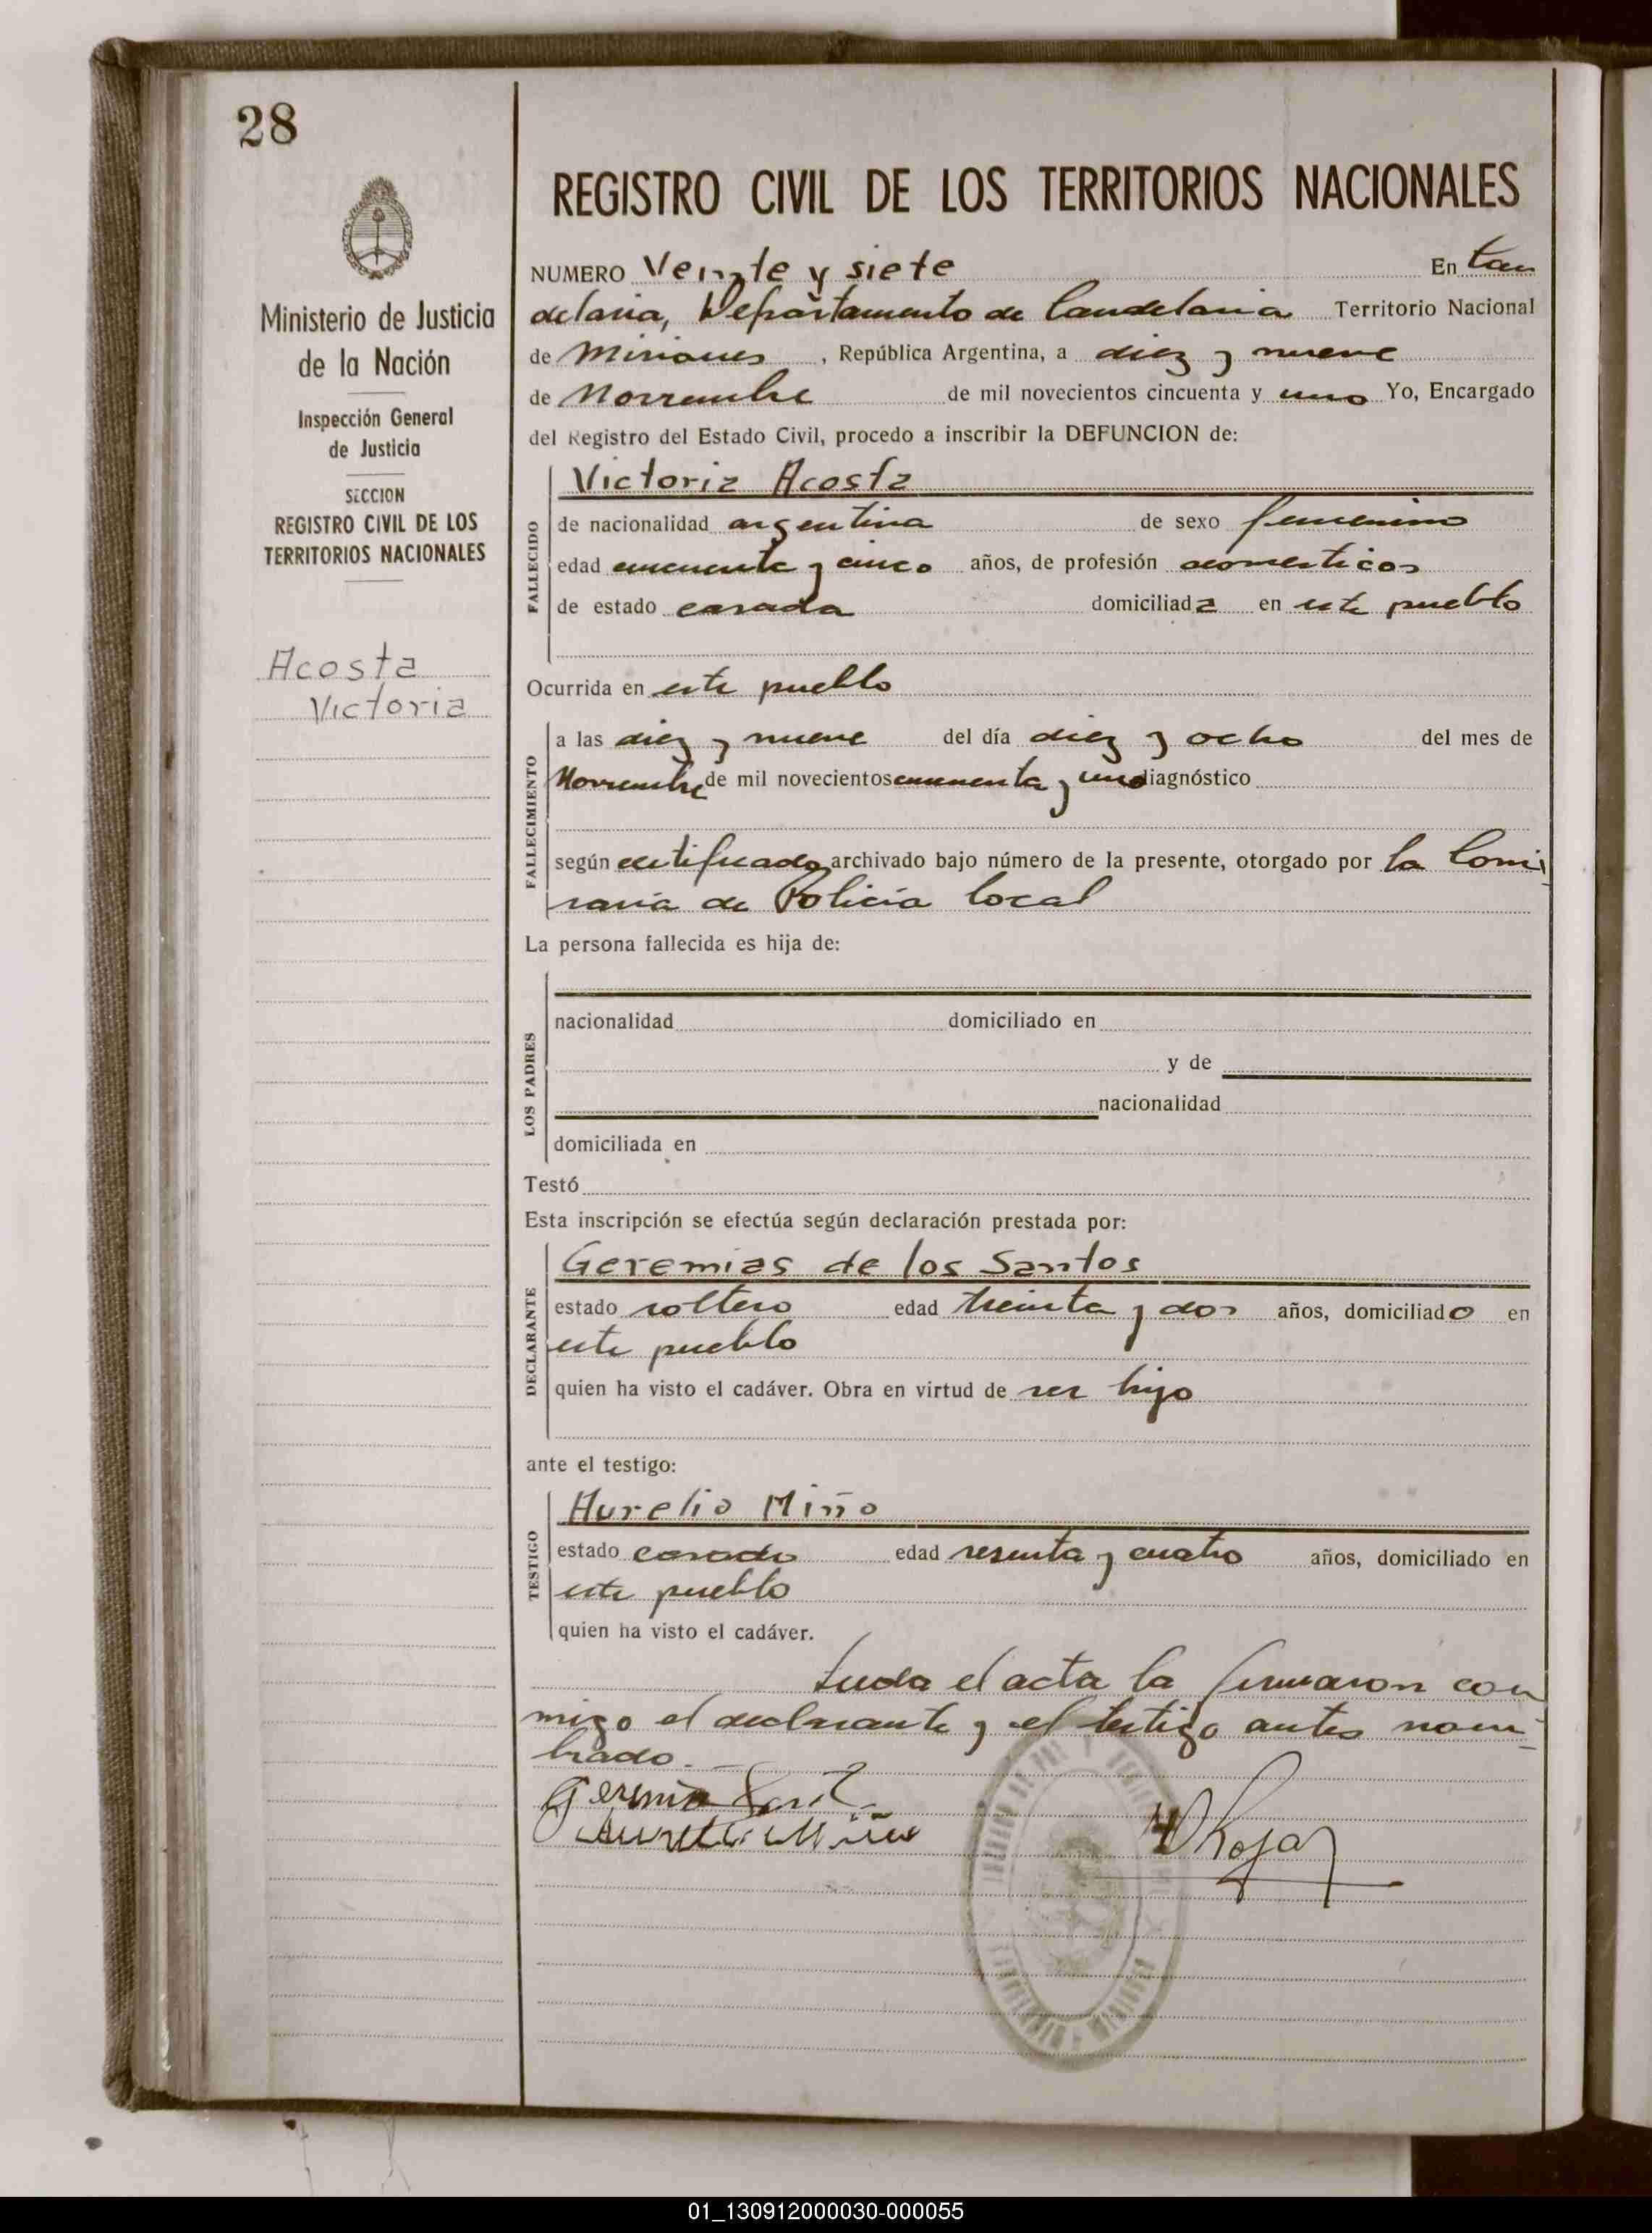 28
REGISTRO CIVIL DE LOS TERRITORIOS NACIONALES
Ministerio de Justicia
de la Nación
Inspección General
de Justicia
SECCION
REGISTRO CIVIL DE LOS
TERRITORIOS NACIONALES
Acosta
Victoria
NUMERO Veinte y siete En Can
delaria, Departamento de Candelaria Territorio Nacional
de Misiones, República Argentina, a diez y nueve
de Noviembre de mil novecientos cincuenta y uno Yo, Encargado
del Registro del Estado Civil, procedo a inscribir la DEFUNCION de:
Victoria Acosta
FALLECIDO
de nacionalidad argentina de sexo femenino
edad cincuenta y cinco años, de profesión domesticos
de estado casada domiciliada en este pueblo
Ocurrida en este pueblo
FALLECIMIENTO
a las diez y nueve del día diez y ocho del mes de
Noviembre de mil novecientos cincuenta y uno diagnóstico
según certificado archivado bajo número de la presente, otorgado por la Comi
saria de Policia local
La persona fallecida es hija de:
LOS PADRES
nacionalidad domiciliado en
y de
nacionalidad
domiciliada en
Testó
Esta inscripción se efectúa según declaración prestada por:
DECLARANTE
Geremias de los Santos
estado soltero edad treinta y dos años, domiciliado en
este pueblo
quien ha visto el cadáver. Obra en virtud de ser hijo
ante el testigo:
TESTIGO
Aurelio Miño
estado casado edad sesenta y cuatro años, domiciliado en
este pueblo
quien ha visto el cadáver.
Leida el acta la firmaron con
migo el declarante y el testigo antes nom-
brado.
Aurelio Miño
Rojas
01_130912000030-000055